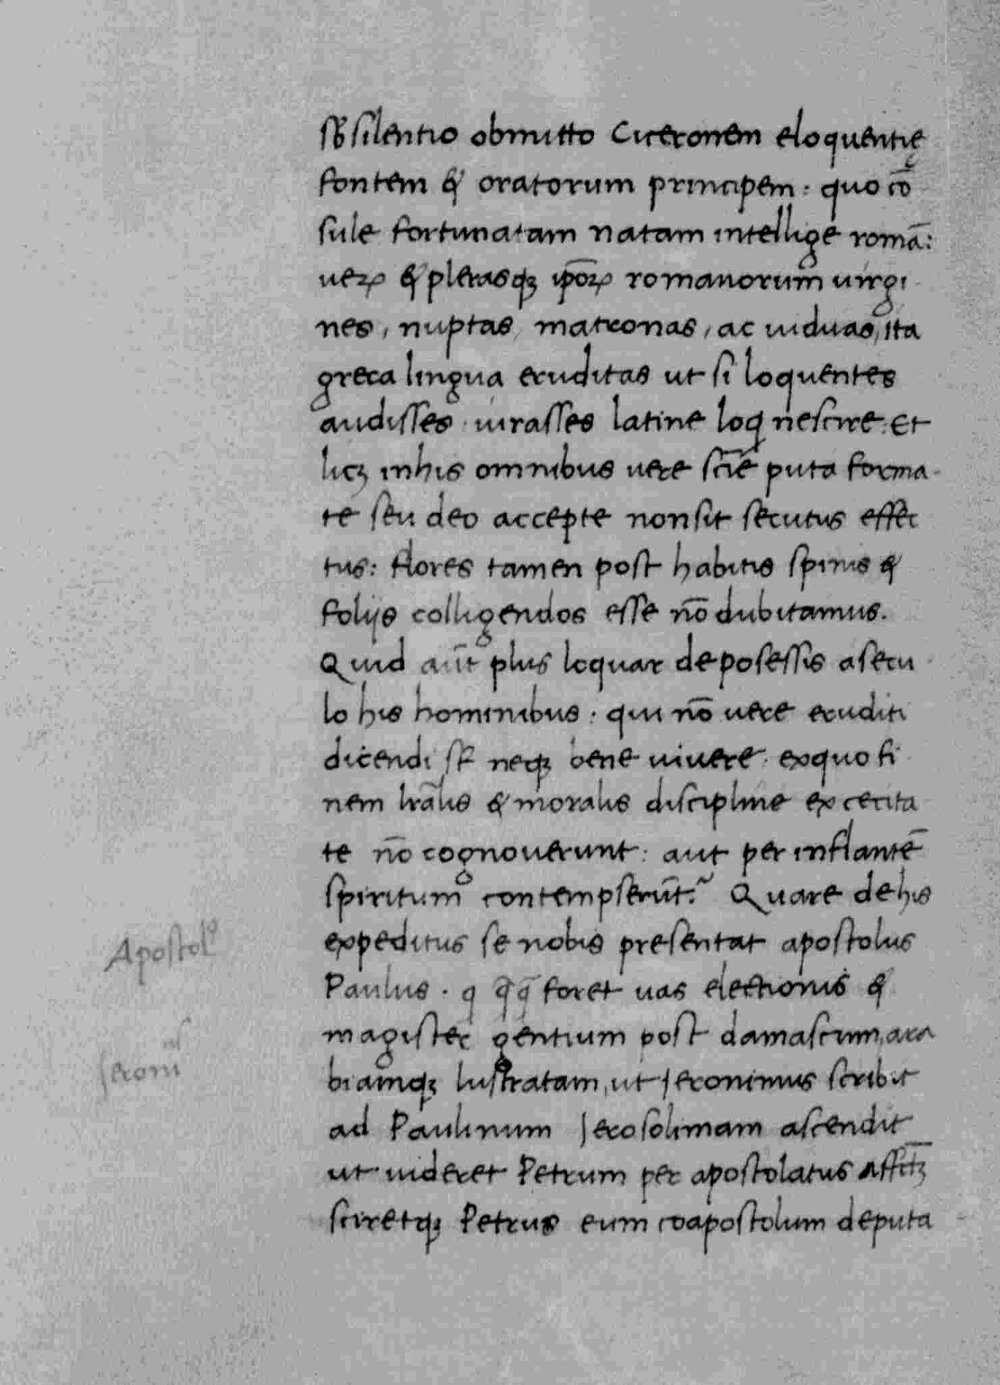 sb silentio obmitto Ciceronem eloquentię
fontem & oratorum principem: quo cō
sule fortunatam natam intellige romā:
uerꝝ & plerasqꝫ ip̄oꝝ romanorum uirgi
nes, nuptas, matronas, ac uiduas, ita
greca lingua eruditas ut si loquentes
audisses iurasses latine loq nescire: Et
licꝫ in his omnibus uere sciē puta forma
te seu deo accepte non sit secutus effec
tus: flores tamen post habitis spinis &
folijs colligendos esse nō dubitamus.
Quid aūt plus loquar de posessis a secu
lo his hominibus: qui nō uere eruditi
dicendi st neqꝫ bene uiuere: exquo fi
nem lr̄alis & moralis discipline ex cecita
te nō cognouerunt: aut per inflantē
spiritum contempserūt? Quare de his
expeditus se nobis presentat apostolus
Apostolꝰ
Paulus. q q̄q̄ foret uas electionis &
magister gentium post damascum, ara
Jeronimꝰ
biamqꝫ lustratam, ut Jeronimus scribit
ad Paulinum Jerosolimam ascendit
ut uideret Petrum per apostolatus
sciretqꝫ Petrus eum coapostolum deputa